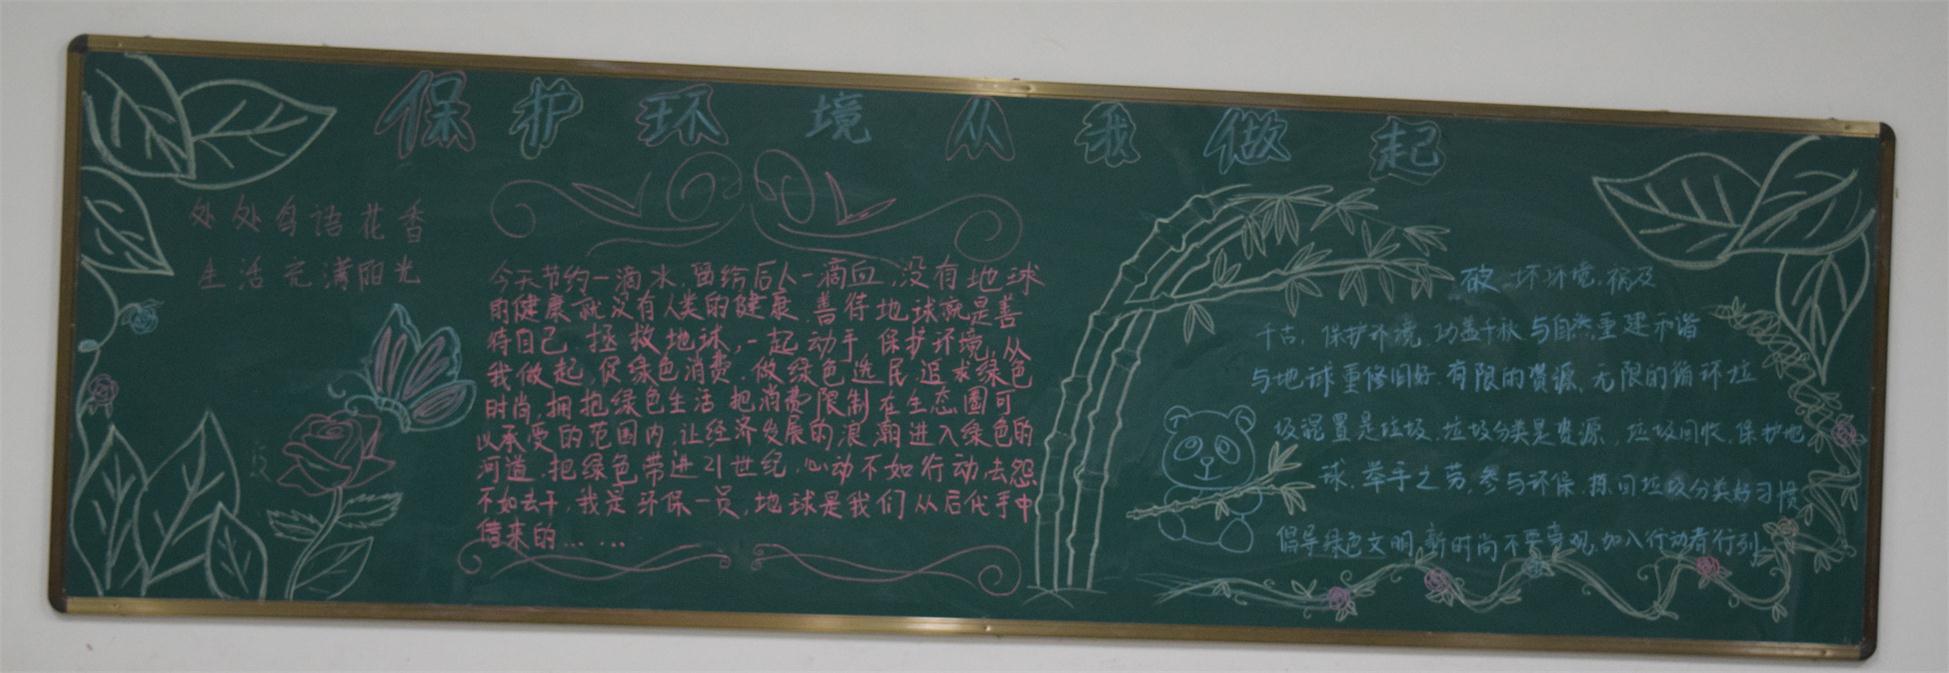 保护环境从我做起
处处鸟语花香
生活充满阳光
今天节约一滴水,留给后人一滴血,没有地球
的健康就没有人类的健康.善待地球就是善
待自己.拯救地球,一起动手.保护环境,从
我做起.促绿色消费.做绿色选民.追求绿色
时尚,拥抱绿色生活.把消费限制在生态圈可
以承受的范围内.让经济发展的浪潮进入绿色的
河道.把绿色带进21世纪.心动不如行动.去怨
不如去干,我是环保一员,地球是我们从后代手中
借来的......
破坏环境.祸及
千古,保护环境,功盖千秋.与自然重建和谐
与地球重修旧好.有限的资源,无限的循环垃
圾混置是垃圾.垃圾分类是资源,垃圾回收,保护地
球.举手之劳,参与环保.拣回垃圾分类好习惯
倡导绿色文明,新时尚不要旁观,加入行动者行列